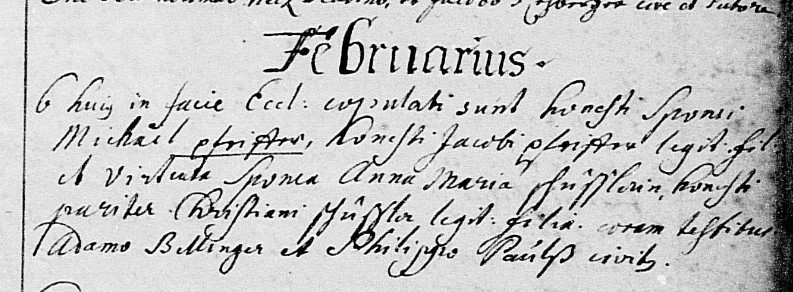 et Jacobo cive et sutore
Februarius.
6 huig in facie Eccl: copulati sunt honesti Sponsi
Michaël pfeiffer, honesti Jacobi pfeiffer legit: fil:
et virtuata Sponsa Anna Maria schüsslerin, honesti
pariter Christiani schüssler legit: filia. coram testibus
Adamo Bettinger et Philippo Paulß civibg.